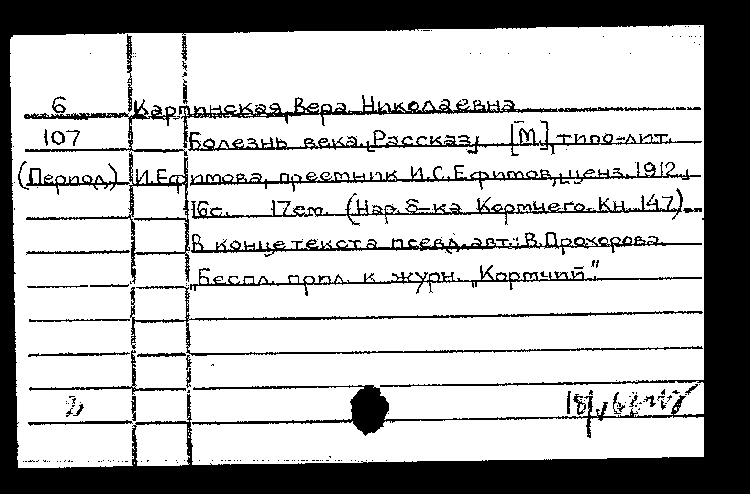 6 Карпинская, Вера Николаевна
107 Болезнь века. [Рассказ] [М.], типо-лит.
(Период.) И. Ефимова, преемник И.С. Ефимов, ценз. 1912.
16с. 17см. (Нар. б-ка Кормчего. Кн. 147).
В конце текста псевд. авт.: В. Прохорова.
Беспл. прил. к журн. „Кормчий"
2 18/V